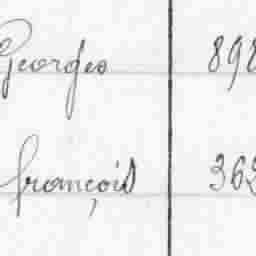 Georges 898
françois 362